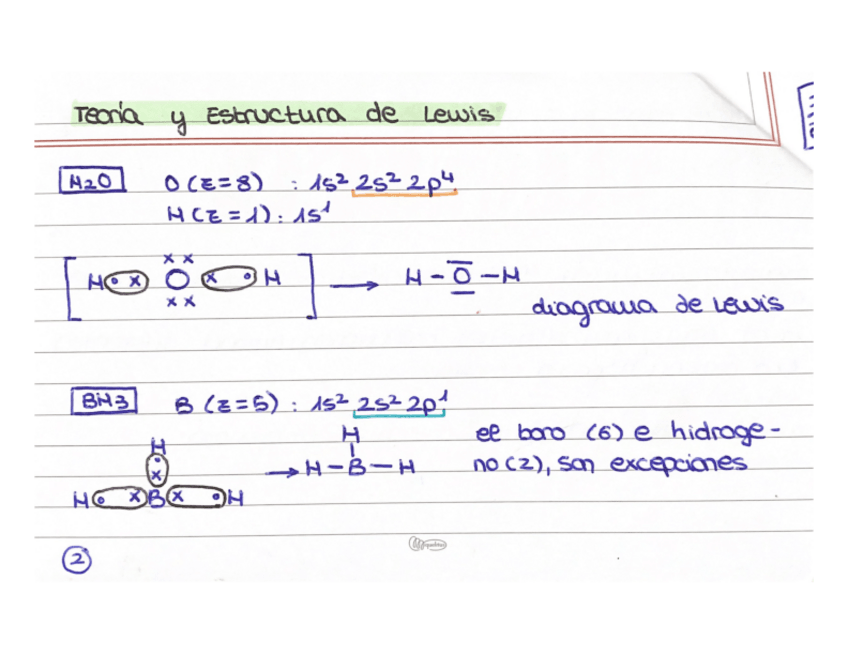 Teoría y Estructura de Lewis
H2O O (Z=8) : 1s² 2s² 2p⁴
H (Z=1) : 1s¹
H • x x x O x x x • H → H - O - H
diagrama de Lewis
BH3 B (Z=5) : 1s² 2s² 2p¹
H
• x
H • x B x • H → H - B - H
H
el boro (6) e hidroge-
no (2), son excepciones
2